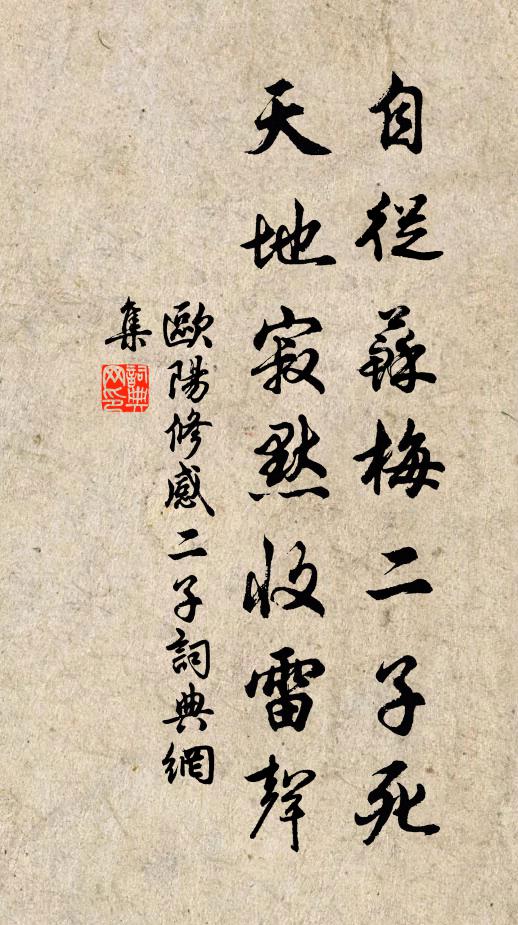 自從蘇梅二子死
天地寂默收雷聲
歐陽修感二子詞典網
集
詞典網印